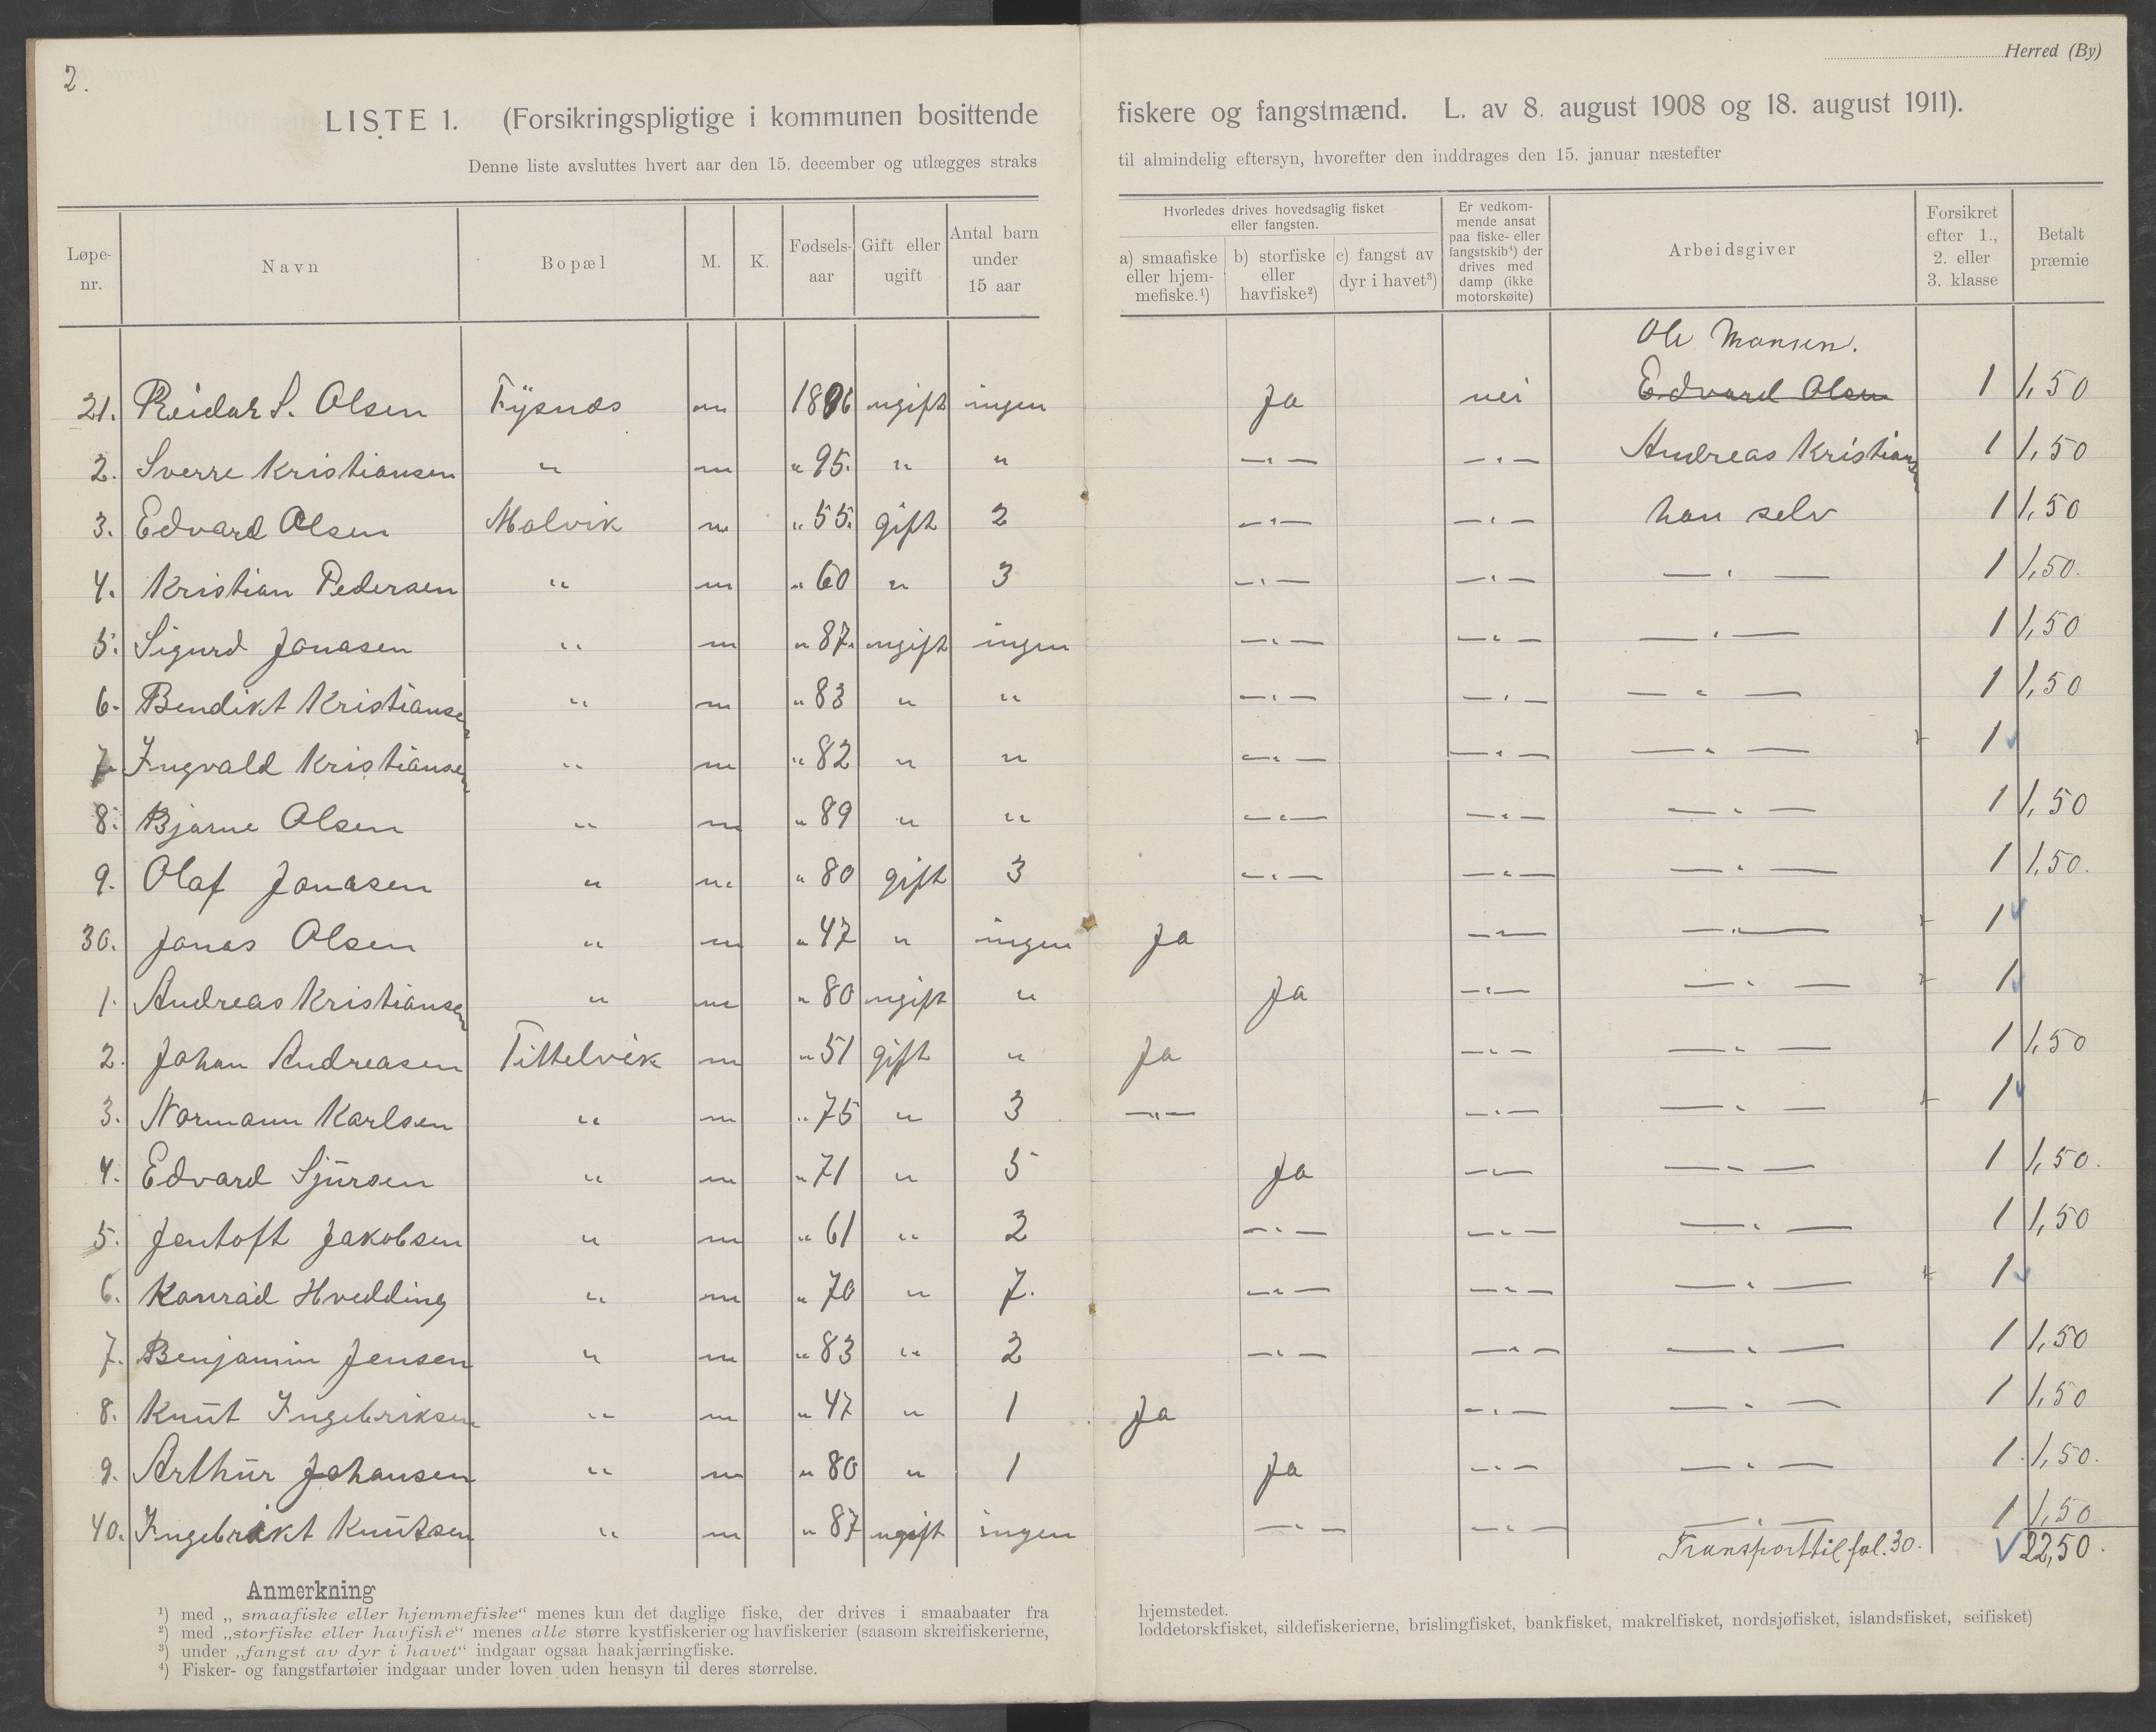 2.
Herred (By)
LISTE 1. (Forsikringspligtige i kommunen bosittende fiskere og fangstmænd. L. av 8. august 1908 og 18. august 1911).
Denne liste avsluttes hvert aar den 15. december og utlægges straks til almindelig eftersyn, hvorefter den inddrages den 15. januar næstefter
Løpe-nr. Navn Bopæl M. K. Fødsels-aar Gift eller ugift Antal barn under 15 aar Hvorledes drives hovedsaglig fisket eller fangsten. a) smaafiske eller hjem-mefiske.¹) b) storfiske eller havfiske²) c) fangst av dyr i havet³) Er vedkom-mende ansat paa fiske- eller fangstskib⁴) der drives med damp (ikke motorskøite) Arbeidsgiver Forsikret efter 1., 2. eller 3. klasse Betalt præmie
Ole Monsen.
21. Reidar S. Olsen Fysnæs m 1896 ugift ingen Ja nei Edvard Olsen 1 1,50
2. Sverre Kristiansen " m " 95. " " —"— —"— Andreas Kristiansen 1 1,50
3. Edvard Olsen Molvik m " 55. gift 2 —"— —"— han selv 1 1,50
4. Kristian Pedersen " m " 60 " 3 —"— —"— —"— 1 1,50.
5. Sigurd Jonasen " m " 87. ugift ingen —"— —"— —"— 1 1,50
6. Bendikt Kristiansen " m " 83 " " —"— —"— —"— 1 1,50
7. Ingvald Kristiansen " m " 82 " " —"— —"— —"— 1
8. Bjarne Olsen " m " 89 " " —"— —"— —"— 1 1,50
9. Olaf Jonasen " m " 80 gift 3 —"— —"— —"— 1 1,50.
30. Jonas Olsen " m " 47 " ingen Ja —"— —"— 1
1. Andreas Kristiansen " m " 80 ugift " Ja —"— —"— 1
2. Johan Andreasen Tittelvik m " 51 gift " Ja —"— —"— 1 1,50
3. Normann Karlsen " m " 75 " 3 —"— —"— —"— 1
4. Edvard Sjūrsen " m " 71 " 5 Ja —"— —"— 1 1,50.
5. Jentoft Jakobsen " m " 61 " 2 —"— —"— —"— 1 1,50
6. Konrad Hvedding " m " 70 " 7. —"— —"— —"— 1
7. Benjamin Jensen " m " 83 " 2 —"— —"— —"— 1 1,50
8. Knūt Ingebriksen " m " 47 " 1 Ja —"— —"— 1 1,50
9. Arthūr Johansen " m " 80 " 1 Ja —"— —"— 1 1,50.
40. Ingebrikt Knūtsen " m " 87 ugift ingen —"— —"— —"— 1 1,50
Transport til fol. 30. 22,50.
Anmerkning
¹) med „smaafiske eller hjemmefiske“ menes kun det daglige fiske, der drives i smaabaater fra hjemstedet.
²) med „storfiske eller havfiske“ menes alle større kystfiskerier og havfiskerier (saasom skreifiskerierne, loddetorskfisket, sildefiskerierne, brislingfisket, bankfisket, makrelfisket, nordsjøfisket, islandsfisket, seifisket)
³) under „fangst av dyr i havet“ indgaar ogsaa haakjærringfiske.
⁴) Fisker- og fangstfartøier indgaar under loven uden hensyn til deres størrelse.